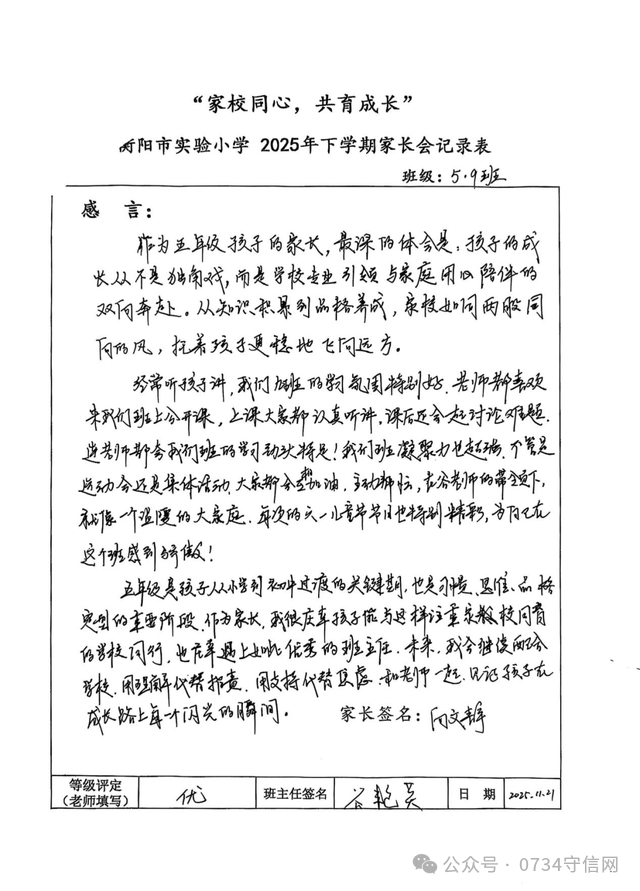 “家校同心，共育成长”
衡阳市实验小学 2025年下学期家长会记录表
班级：5.9班
感 言：
作为五年级孩子的家长，最深的体会是：孩子的成
长从不是独角戏，而是学校专业引领与家庭用心陪伴的
双向奔赴。从知识积累到品格养成，家校如同两股同
向的风，托着孩子更稳地飞向远方。
经常听孩子讲，我们班的学习氛围特别好，老师都喜欢
来我们班上公开课，上课大家都认真听讲。课后还会一起讨论难题。
连老师都夸我们班的学习动力特足！我们班凝聚力也超强，不管是
运动会还是集体活动、大家都会帮加油、主动帮忙，在谷老师的带领下，
就像一个温暖的大家庭。每次的六一儿童节节目也特别精彩，为自己在
这个班感到骄傲！
五年级是孩子从小学到初中过渡的关键期，也是习惯、思维、品格
定型的重要阶段。作为家长，我很庆幸孩子能与这样注重家教、校同育
的学校同行，也庆幸遇上如此优秀的班主任。未来，我会继续配合
学校，用理解代替指责，用支持代替焦虑，和老师一起，见证孩子在
成长路上每一个闪光的瞬间。 家长签名：向文
等级评定
（老师填写） 优 班主任签名 谷艳英 日 期 2025.11.21
公众号 · 0734守信网